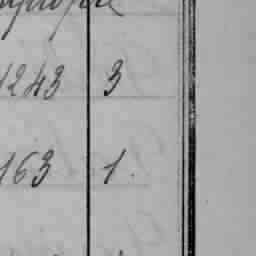 1243 3
163 1.